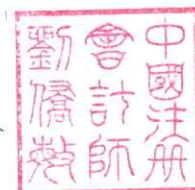 中國注册
會計師
劉僑敖